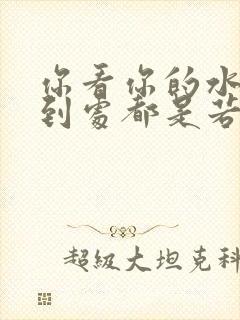 你看你的水
到处都是若
超級大坦克科